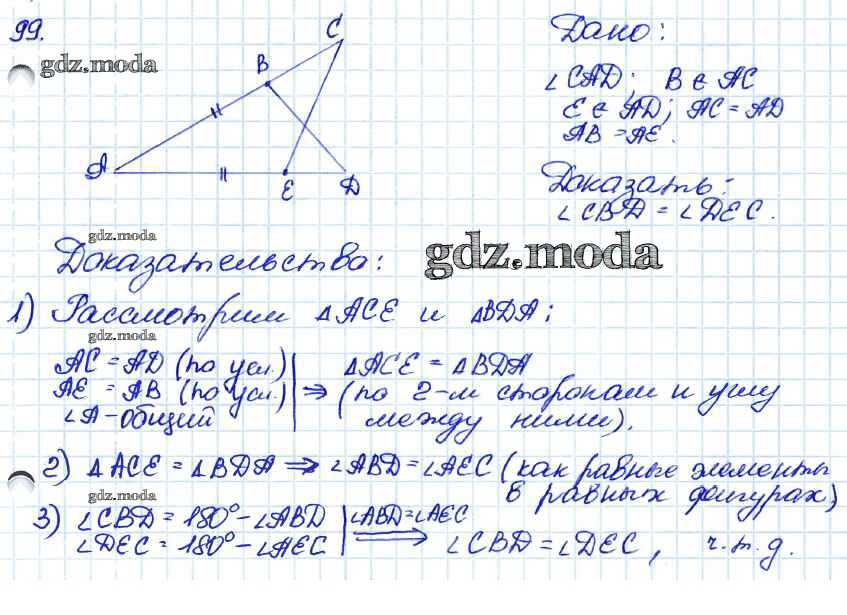 99.
gdz.moda
C
B
A
E
D
Дано:
∠CAD; B ∈ AC
E ∈ AD; AC = AD
AB = AE.
Доказать:
∠CBD = ∠DEC.
gdz.moda
Доказательство:
gdz.moda
1) Рассмотрим △ACE и △BDA:
gdz.moda
AC = AD (по усл.) | △ACE = △BDA
AE = AB (по усл.) | ⇒ (по 2-м сторонам и углу
∠A - общий | между ними).
2) △ACE = △BDA ⇒ ∠ABD = ∠AEC (как равные элементы
в равных фигурах)
gdz.moda
3) ∠CBD = 180° - ∠ABD | ∠ABD = ∠AEC
∠DEC = 180° - ∠AEC | ⇒ ∠CBD = ∠DEC, ч.т.д.